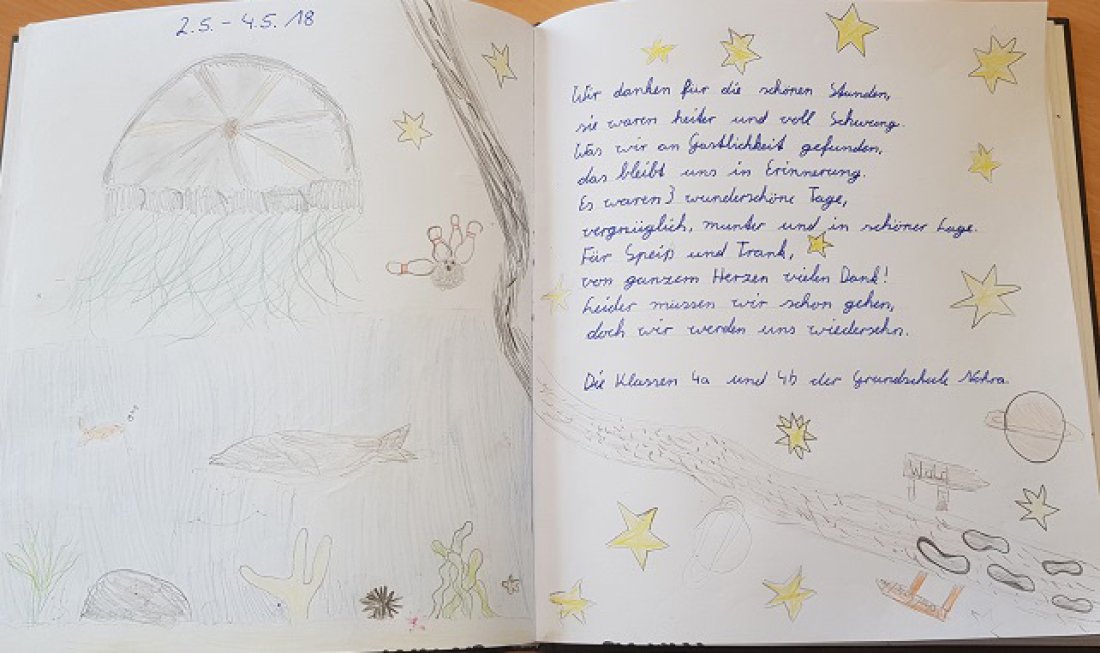 2.5. - 4.5. 18
Wir danken für die schönen Stunden,
sie waren heiter und voll Schwung.
Was wir an Gastlichkeit gefunden,
das bleibt uns in Erinnerung.
Es waren 3 wunderschöne Tage,
vergnüglich, munter und in schöner Lage.
Für Speiß und Trank,
von ganzem Herzen vielen Dank!
Leider müssen wir schon gehen,
doch wir werden uns wiedersehn.
Die Klassen 4a und 4b der Grundschule Nohra.
Wald